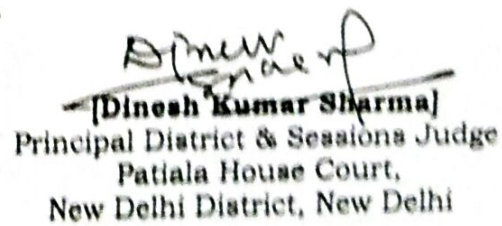 [Dinesh Kumar Sharma]
Principal District & Sessions Judge
Patiala House Court,
New Delhi District, New Delhi